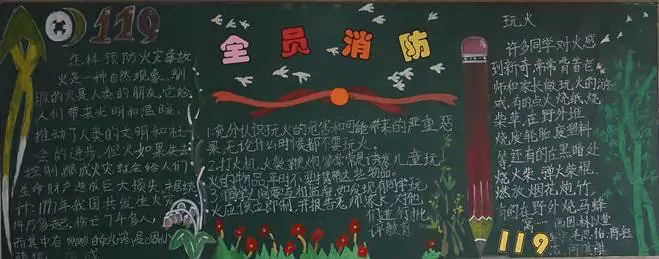 119
怎样预防火灾事故
火是一种自然现象，驯
服的火是人类的朋友，它给
人们带来光明和温暖，
推动了人类的文明和社
会的进步。但火如果失去
控制，酿成火灾就会给人们
生命财产造成巨大损失，据统
计：1997年我国共发生火灾
14万多起，伤亡74多人，
而其中有
全员消防
1.充分认识玩火的危害和可能带来的严重恶
果，无论什么时候都不要玩火。
2.打火机、火柴、鞭炮等常常是诱发儿童玩
火的物品，平时不要携带这些物品。
3.同学们要互相监督，如发现有同学玩
火应该立即制止，并报告老师家长，对他
们进行批
评教育
玩火
许多同学对火感
到新奇，常常背着老
师和家长做玩火的游
戏，有的点火烧纸，烧
柴草，在野外堆
烧废轮胎，废塑料
等，还有的在黑暗处
烧火柴，弹火柴棍，
燃放烟花炮竹，
有的在野外烧马蜂
窝
119